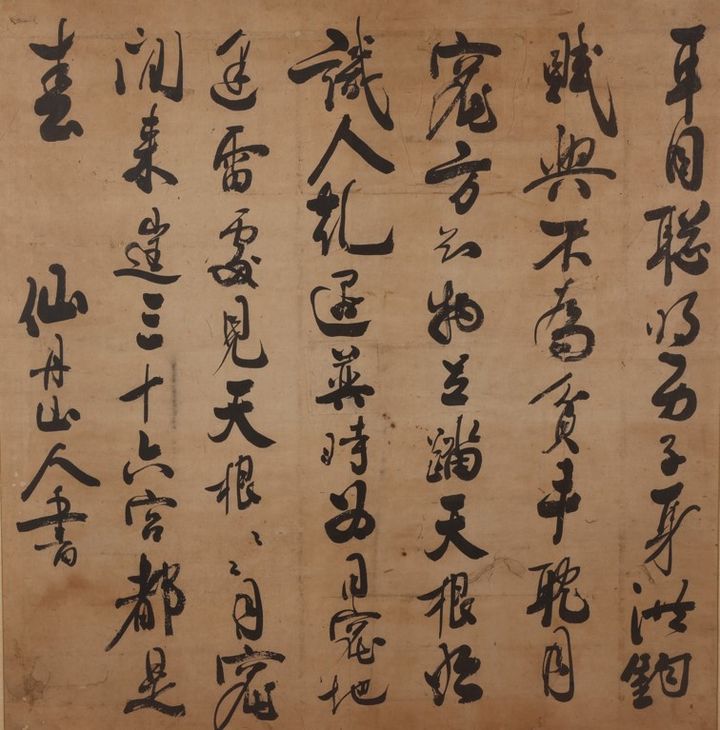 耳目聰明男子身洪鈞
賦與不為貧耽月
窟方知物天根始
識人乾遇巽時為月窟地
逢雷處見天根〻〻月窟
閒來往三十六宮都是
春
仙丹山人書